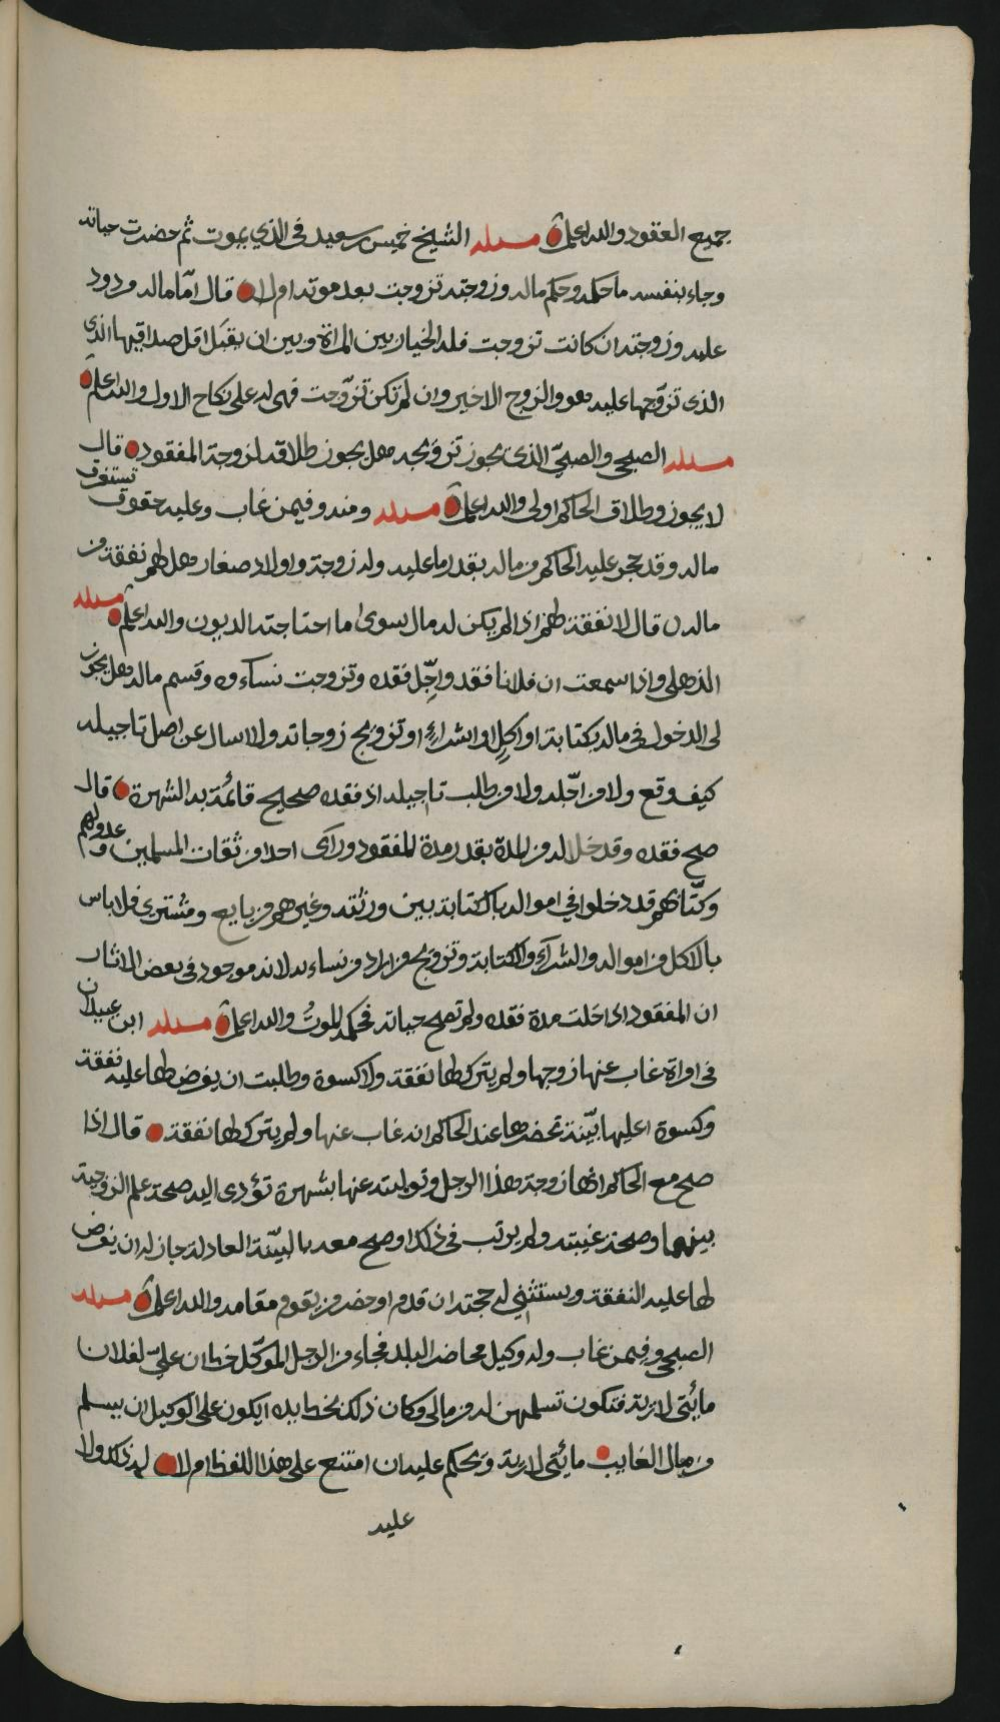 جميع العقود والله اعلم مسئلة الشيخ خميس بن سعيد في الذي يموت ثم حضرت حياته
وجاء بنفسه ما حكمه وحكم ماله وزوجته تزوجت بعد موته ام لا قال اما ماله مردود
عليه وزوجته ان كانت تزوجت فله الخيار بين المراة وبين ان يقبل اقل صداقيها الذي
الذي تزوجها عليه هو والزوج الاخير وان لم تكن تزوجت فهي له على نكاح الاول والله اعلم
مسئلة الصبحي والصبي الذي يجوز تزويجه هل يجوز طلاقه لزوجة المفقود قال
لا يجوز وطلاق الحاكم اولى والله اعلم مسئلة ومنه وفيمن غاب وعليه حقوق تستغرق
ماله وقد حجر عليه الحاكم من ماله بقدر ما عليه وله زوجة واولاد صغار هل لهم نفقة من
ماله قال لا نفقة لهم اذا لم يكن له مال سوى ما احتاجته الديون والله اعلم مسئلة
الذهلي واذا سمعت ان فلانا فقد واجل فقده وتزوجت نساءه وقسم ماله هل يجوز
لي الدخول في ماله بكتابة او اكل او اشراء او تزويج زوجاته ولا اسال عن اصل تاجيله
كيف وقع ولا من اجله ولا من طلب تاجيله اذ فقده صحيح قائمة به الشهرة قال
صح فقده وقد خلا له من المدة بقدر مدة المفقود وراى احدا من ثقات المسلمين وعدولهم
وكتابهم قد دخلوا في امواله بالكتابة بين ورثته وغيرهم من بايع ومشتري فلا باس
بالاكل من امواله والشراء والكتابة وتزويج من اراد من نساءه لانه موجود في بعض الاثار
ان المفقود اذا خلت مدة فقده ولم تصح حياته فحكمه الموت والله اعلم مسئلة ابن عبيدان
في امراة غاب عنها زوجها ولم يترك لها نفقة ولا كسوة وطلبت ان يفرض لها عليه نفقة
وكسوة اعليها بينة تحضرها عند الحاكم انه غاب عنها ولم يترك لها نفقة قال اذا
صح مع الحاكم انها زوجة هذا الرجل وتوليته عنها بشهرة تؤدي اليه صحة علم الزوجية
بينهما وصحة غيبته ولم يرتب في ذلك او صح معه بالبينة العادلة جاز له ان يفرض
لها عليه النفقة ويستثني له حجته ان قدم او حضر من يقوم مقامه والله اعلم مسئلة
الصبحي وفيمن غاب وله وكيل محاضر البلد فجاء من الرجل الموكل خط ان علي لفلان
مائتي لارية فتكون تسلمهن له من مالي وكان ذلك بخط يده ايكون على الوكيل ان يسلم
من مال الغايب مائتي لارية ويحكم عليه ان امتنع على هذا اللفظ ام لا له ذلك ولا
عليه